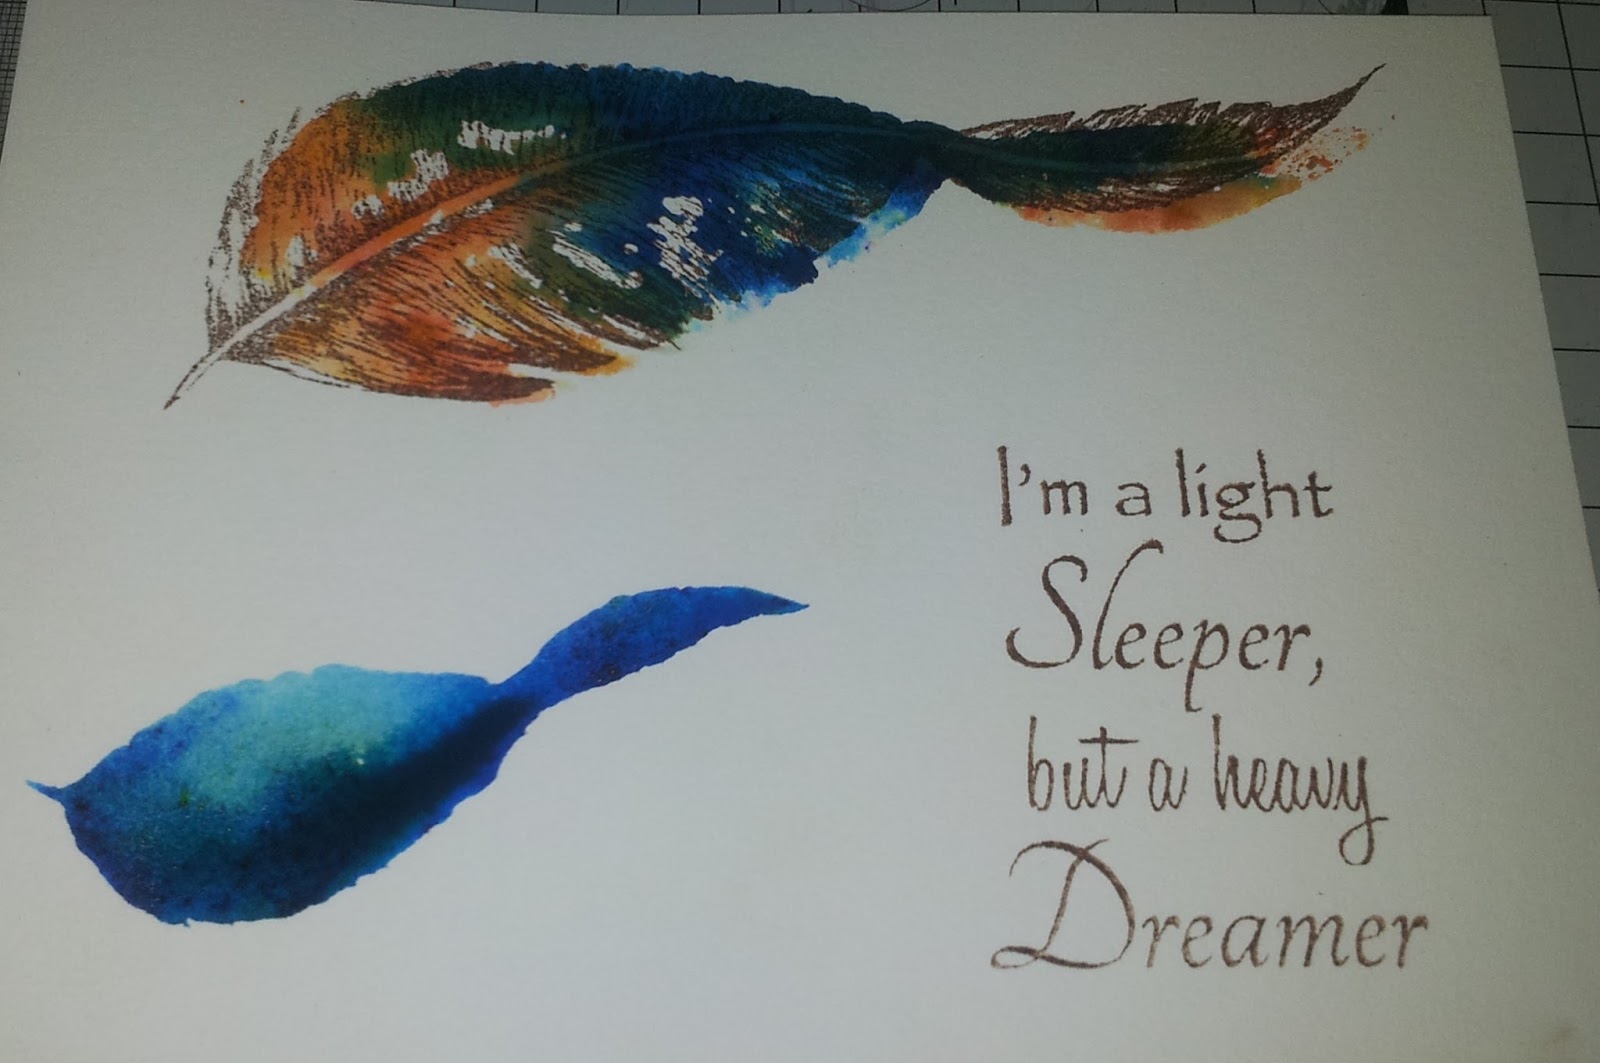 I'm a light
Sleeper,
but a heavy
Dreamer